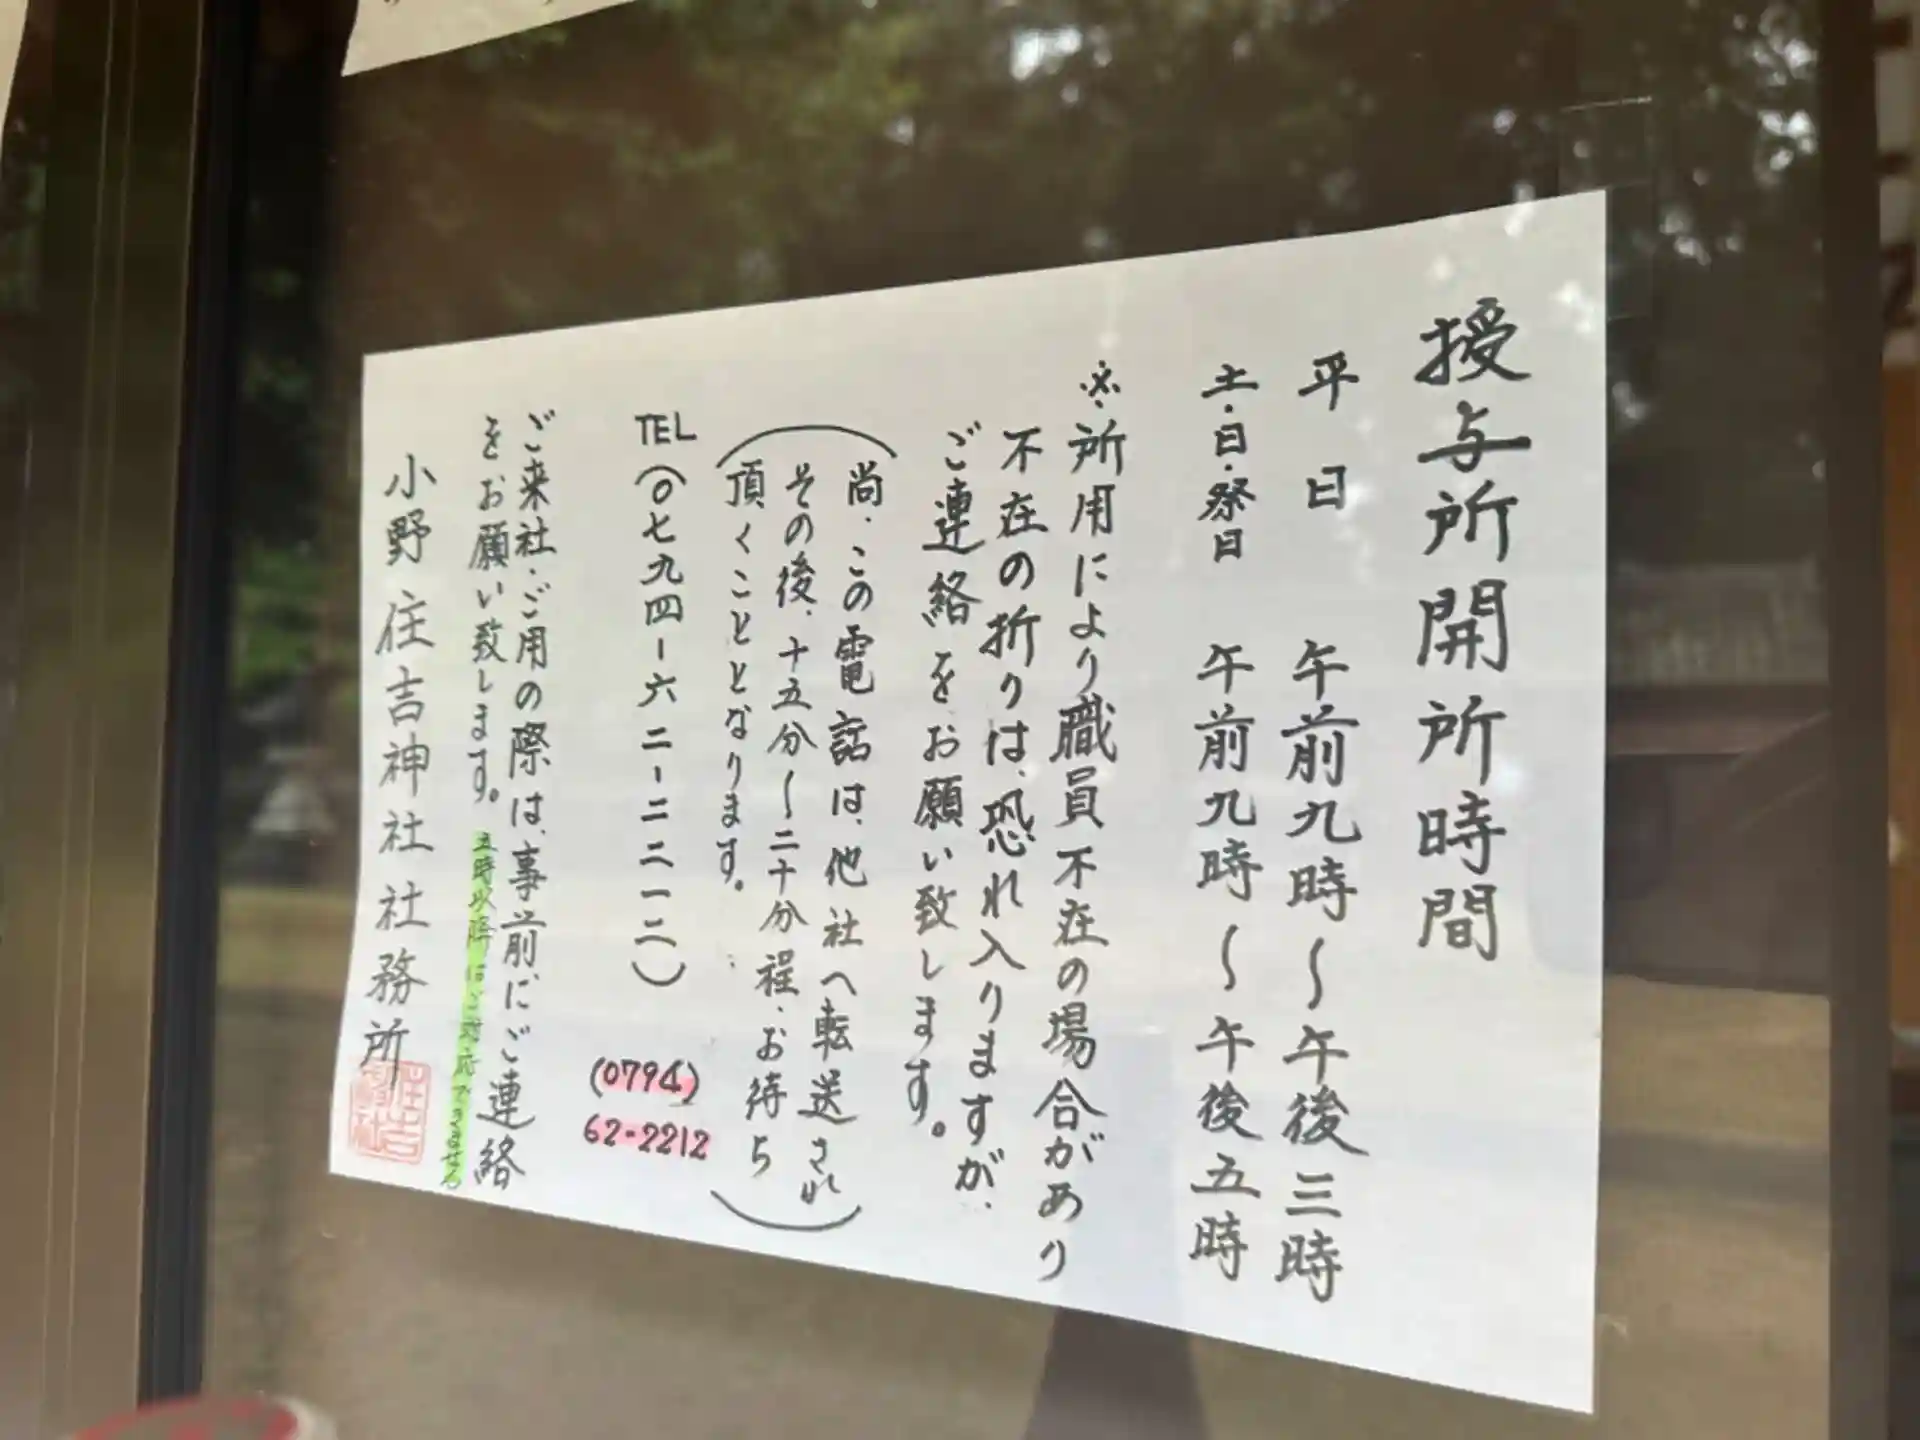 授与所開所時間
平日 午前九時〜午後三時
土・日・祭日 午前九時〜午後五時
※所用により職員不在の場合があり
不在の折りは、恐れ入りますが、
ご連絡をお願い致します。
(尚、この電話は、他社へ転送され
その後、十五分〜二十分程、お待ち
頂くこととなります。)
TEL(〇七九四-六二-二二一二)
(0794)
62-2212
ご来社・ご用の際は、事前にご連絡
をお願い致します。五時以降はご対応できません
小野住吉神社社務所